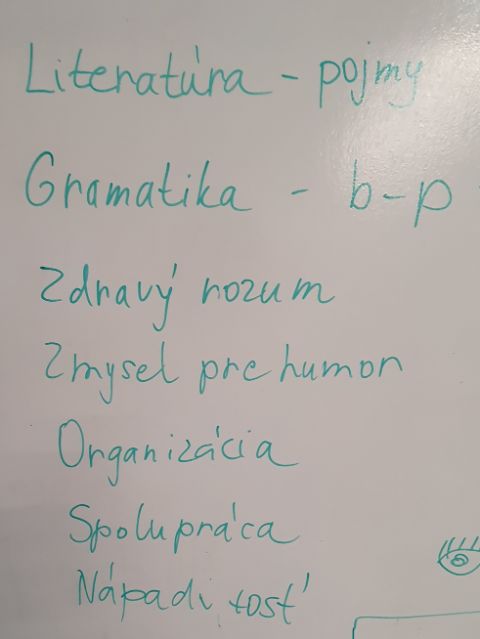 Literatúra - pojmy
Gramatika - b-p
Zdravý rozum
Zmysel pre humor
Organizácia
Spolupráca
Nápaditosť